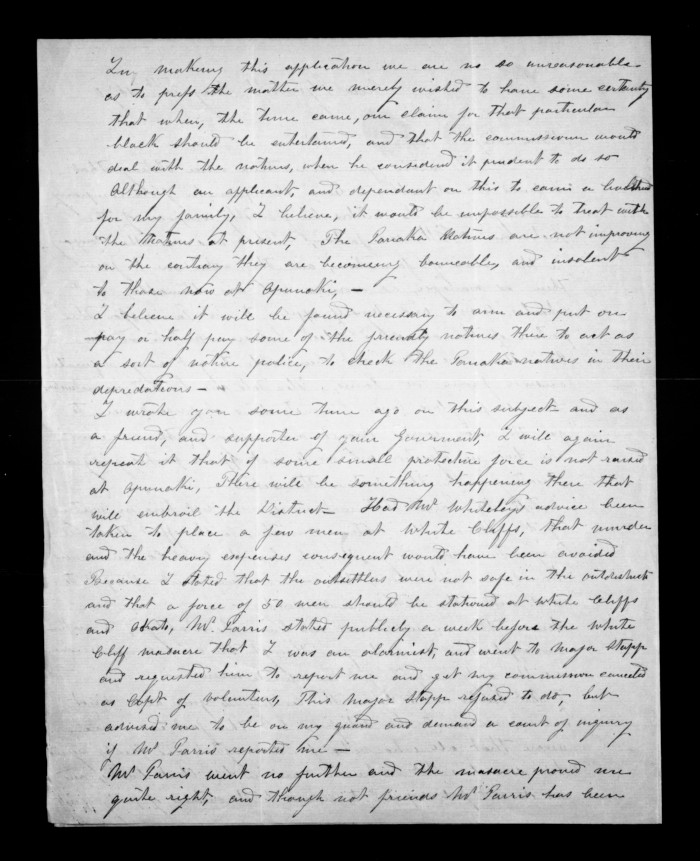 In making this application we are no so unreasonable
as to press the matter we merely wished to have some certainty
that when, the time came, our claim for that particular
block should be entertained, and that the commissioner would
deal with the natives, when he considered it prudent to do so
Although an applicant, and dependant on this to earn a livelihood
for my family, I believe, it would be impossible to treat with
the Natives at present, The Taranaki Natives are not improving
on the contrary they are becoming and insolent
to those now at Opunaki, —
I believe it will be found necessary to arm and put on
pay or half pay some of the friendly natives there to act as
a sort of native police, to check the natives in their
depredations —
I wrote you some time ago on this subject and as
a friend, and supporter of your Goverment I will again
repeat it that if some small protective force is not raised
at Opunaki, There will be something happening there that
will embroil the District — Had Mr Whiteley's advice been
taken to place a few men, at White Cliffs, that murder
and the heavy expenses consequent would have been avoided
Because I stated that the outsettlers were not safe in the outdistricts
and that a force of 50 men should be stationed at White Cliffs
and Okato, Mr Parris stated publicly a week before the White
Cliff massacre that I was an alarmist, and went to Major Stapp
and requested him to report me and get my commission canceled
as Capt of Volunteers, This Major Stapp refused to do, but
advised me to be on my guard and demand a court of inquiry
if Mr Parris reported me —
Mr Parris went no further and the masacre proved me
quite right, and though not friends Mr Parris has been